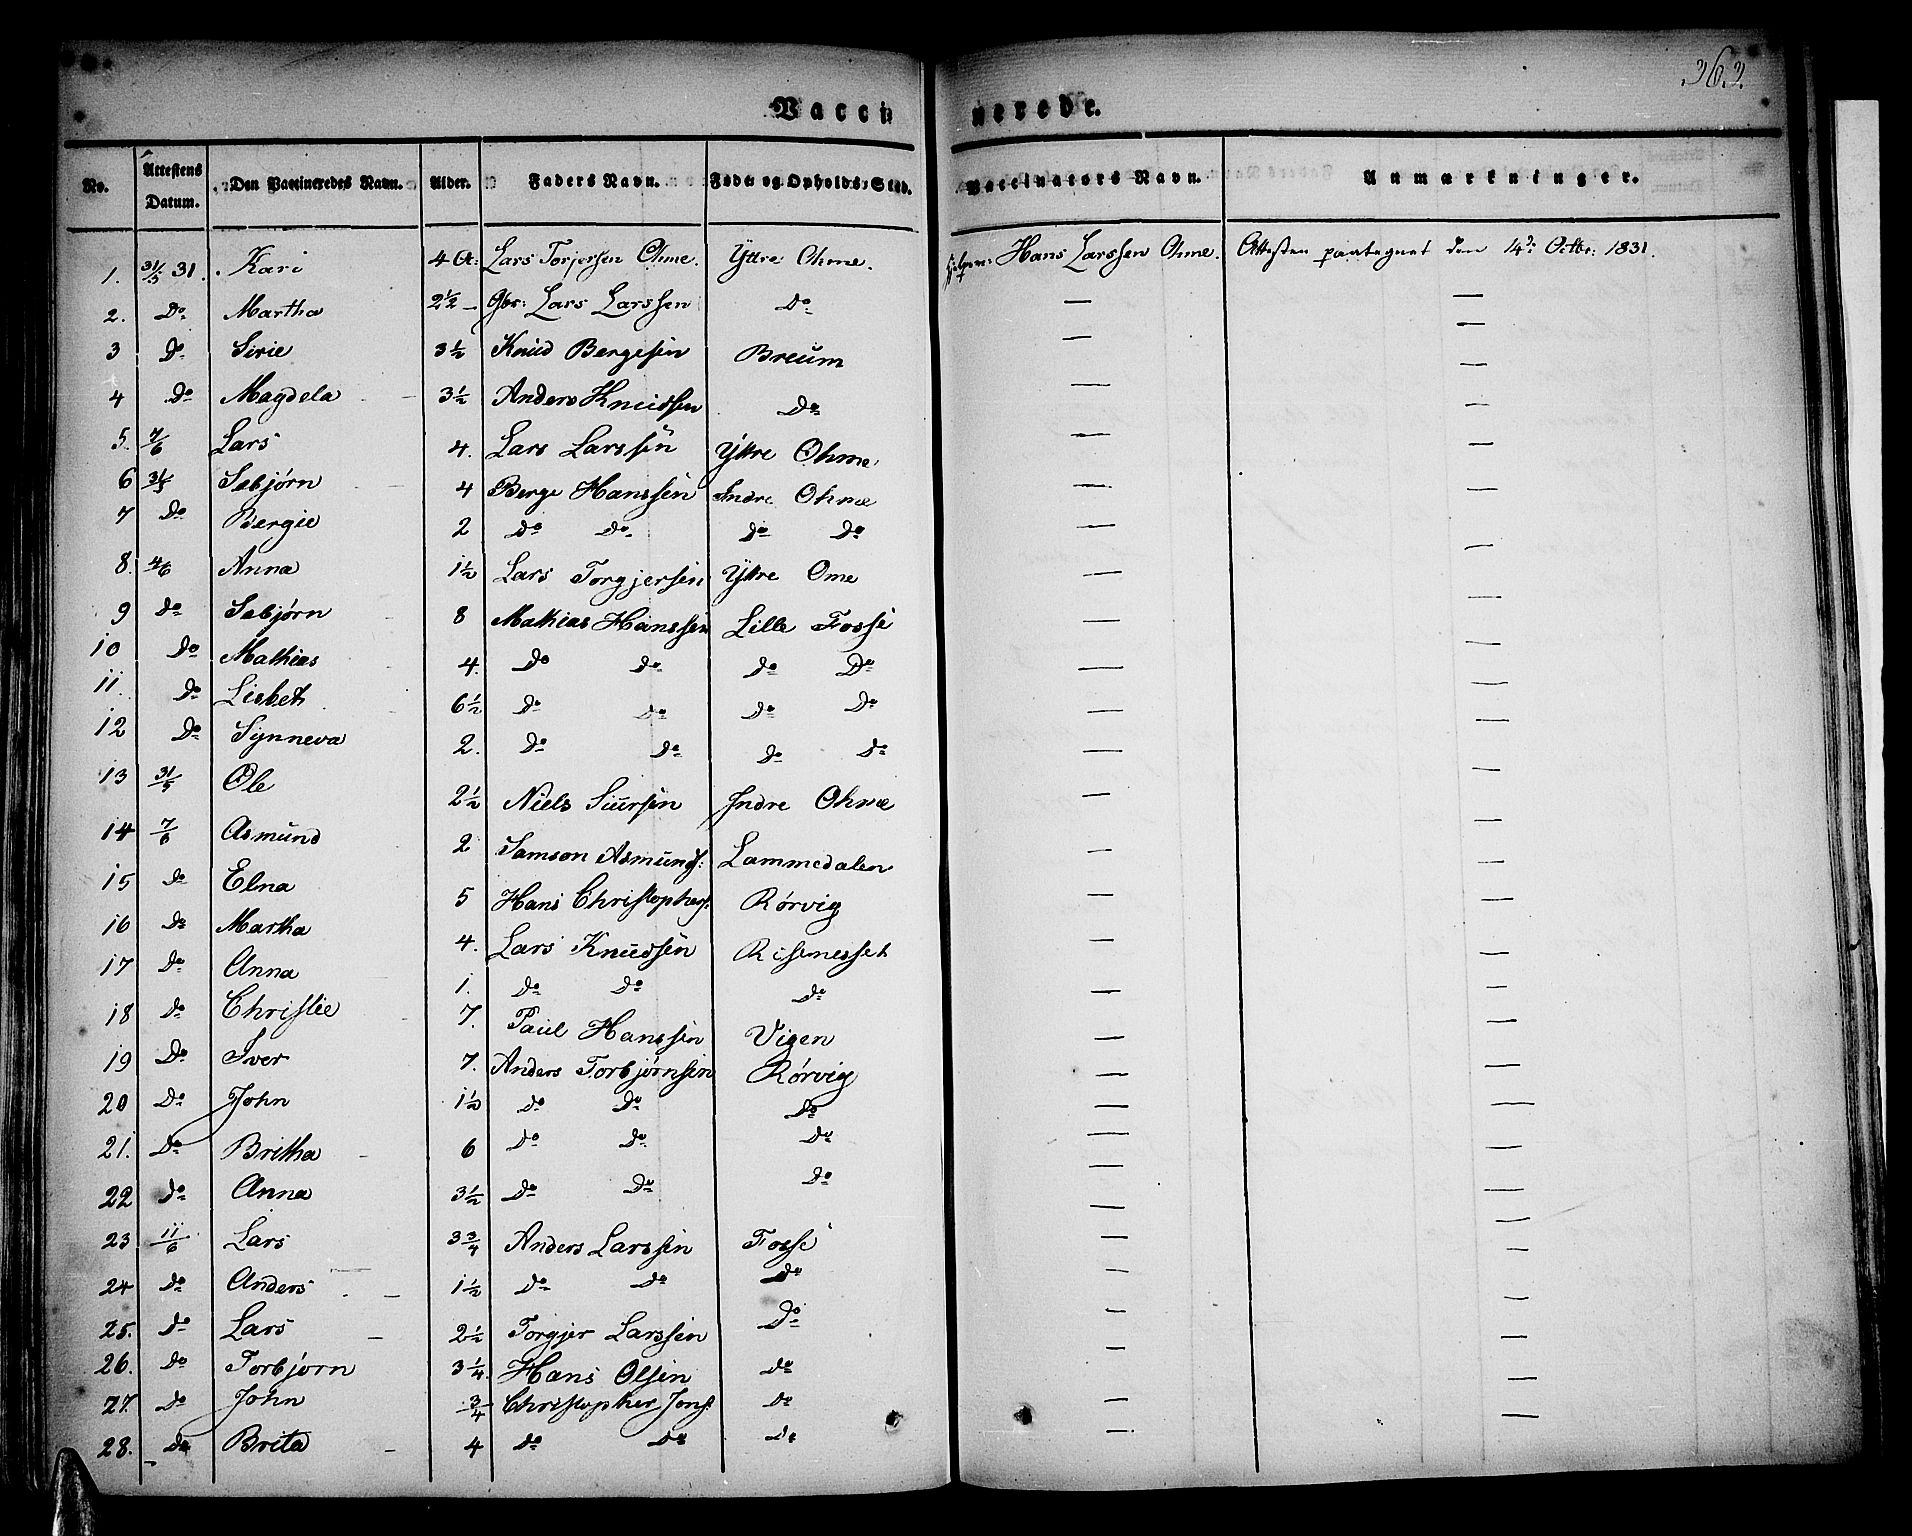 363.
Vaccinerede.
No. Attestens Datum. Den Vaccineredes Navn. Alder. Faders Navn. Føde og Opholds-Sted. Vaccinators Navn. Anmærkninger.
1. 31/5 31. Kari 4 A: Lars Torjersen Ohme. Yttre Ohme. Hans Larssen Ohme. Attesten paategnet den 14de Octbr: 1831.
2. Do Martha 2 1/2 – Gbr: Lars Larssen Do — —
3 Do Sirie 3 1/2 Knud Bergesen Breum — —
4 Do Magdela 3 1/2 Anders Knudsen Do — —
5. 7/6 Lars 4. Lars Larssen Yttre Ohme — —
6 31/5 Sebjørn 4 Berge Hanssen Indre Ohme — —
7 Do Bergie 2 Do Do Do Do — —
8. 4/6 Anna 1 1/2 Lars Torgjersen Yttre Ome — —
9 Do Sebjørn 8 Mathias Hanssen Lille Fosse — —
10 Do Mathias 4. Do Do Do Do — —
11. Do Lisbet 6 1/2 Do Do Do Do — —
12 Do Synneva 2. Do Do Do Do — —
13 31/5 Ole 2 1/2 Niels Siursen Indre Ohme — —
14 7/6 Asmund 2 Samson Asmunds: Lammedalen — —
15 Do Elna 5 Hans Christophers: Rørvig — —
16 Do Martha 4. Lars Knudsen Risenesset — —
17 Do Anna 1. Do Do Do — —
18 Do Christie 7. Paul Hanssen Vigen — —
19 Do Iver 7. Anders Torbjørnsen Rørvig — —
20 Do John 1 1/2 Do Do Do — —
21. Do Britha 6 Do Do Do — —
22 Do Anna 3 1/2 Do Do Do — —
23 11/6 Lars 3 3/4 Anders Larssen Fosse — —
24 Do Anders 1 1/2 Do Do Do — —
25. Do Lars 2 1/2 Torgjer Larssen Do — —
26. Do Torbjørn 3 1/4. Hans Olsen Do — —
27. Do John 3/4 Christopher Jons: Do — —
28. Do Brita 4 Do Do Do —